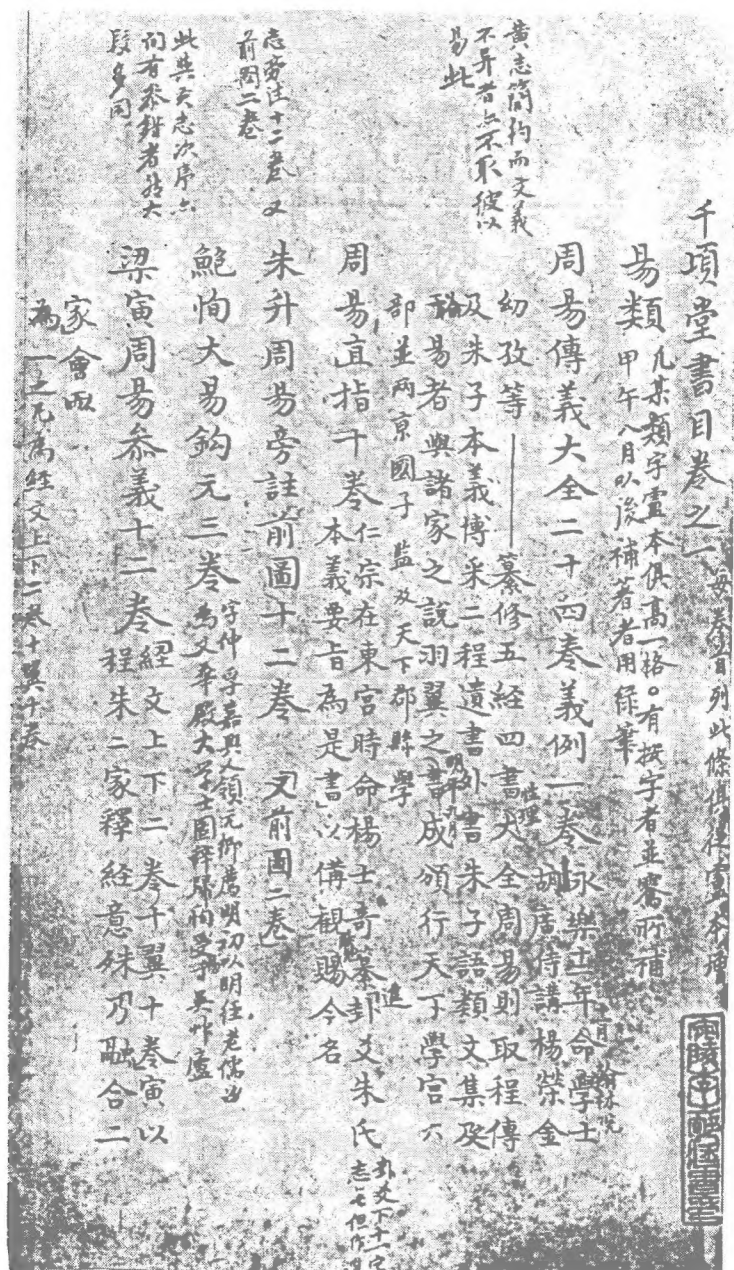 千頃堂書目卷之一
每卷首列此條俱從盧本增
易類
凡某類字盧本俱高一格。有按字者並騫所補
甲午八月以後補著者用綠筆
周易傳義大全二十四卷義例一卷
永樂十二年命學士
胡廣侍講楊榮金
十一月 翰林院
幼孜等
纂修五經四書大全周易則取程傳
性理
及朱子本義博采二程遺書外書朱子語類文集及
諸易者與諸家之說羽翼之書成頒行天下學宮六
明年九月
部並兩京國子監及天下郡縣學
周易直指十卷
仁宗在東宮時命楊士奇纂卦爻朱氏
本義要旨為是書以備觀賜今名
進
卦爻下十一字
朱升周易旁註前圖十二卷
又前圖二卷
鮑恂大易鈎元三卷
字仲孚嘉興人領元鄉薦明初以明任老儒
為文華殿大學士固辭歸
梁寅周易參義十二卷
經文上下二卷十翼十卷寅以
程朱二家釋經意殊乃融合二
家會而
為一之凡為經文上下二卷十翼十卷
黄志簡約而文義
不異者亦不取彼以
易此
志旁注十二卷又
前圖二卷
此與大志次序亦
間有參錯者然大
段多同